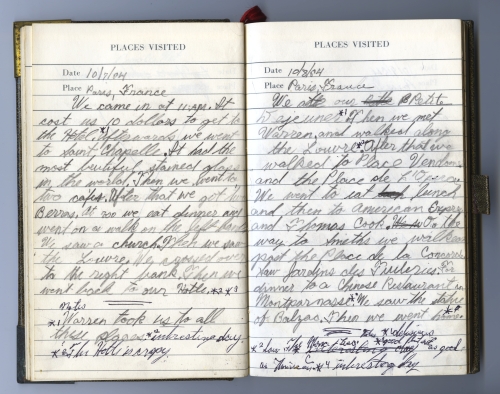 PLACES VISITED
Date 10/7/04
Place Paris, France
We came in at 11 . It
cost us 10 dollars to get to
the Hotel.*1 Afterwards we went
to Saint Chapelle. It had the
most butiful stained glass
in the world. Then we went to
two cafes. After that we got
Berros. At 7:00 we eat dinner and
went on a walk on the left bank
We saw a church. Then we saw
the Louvre. We crossed over
to the right bank. Then we
went back to our Hotle. *2 *3
Notes
*1 Warren took us to all
these places *2 intrestine day
*3 The Hotle is crapy.
PLACES VISITED
Date 10/8/04
Place Paris, France
We ate our Petite
Dejeunet *1 Then we met
Warren, and walked along
the Louvre. After that we
walked to Place Vendom,
and the Place de l'Opera
We went to eat lunch
and then to American Express
and Thomas Cook. On the
way to Smiths we walked
past the Place de la Concorde
saw Jardins des Tuilerus. For
dinner to a Chinese Restaurant in
Montparnasse *3 We saw the statue
of Balzac. Then we went home *4
Notes *1 delicious
*2 saw The Mona Lisa *3 good but not as good
as American *4 intresting day